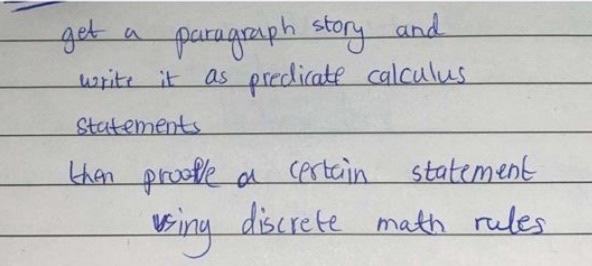 get a paragraph story and
write it as predicate calculus
statements
then proofe a certain statement
using discrete math rules